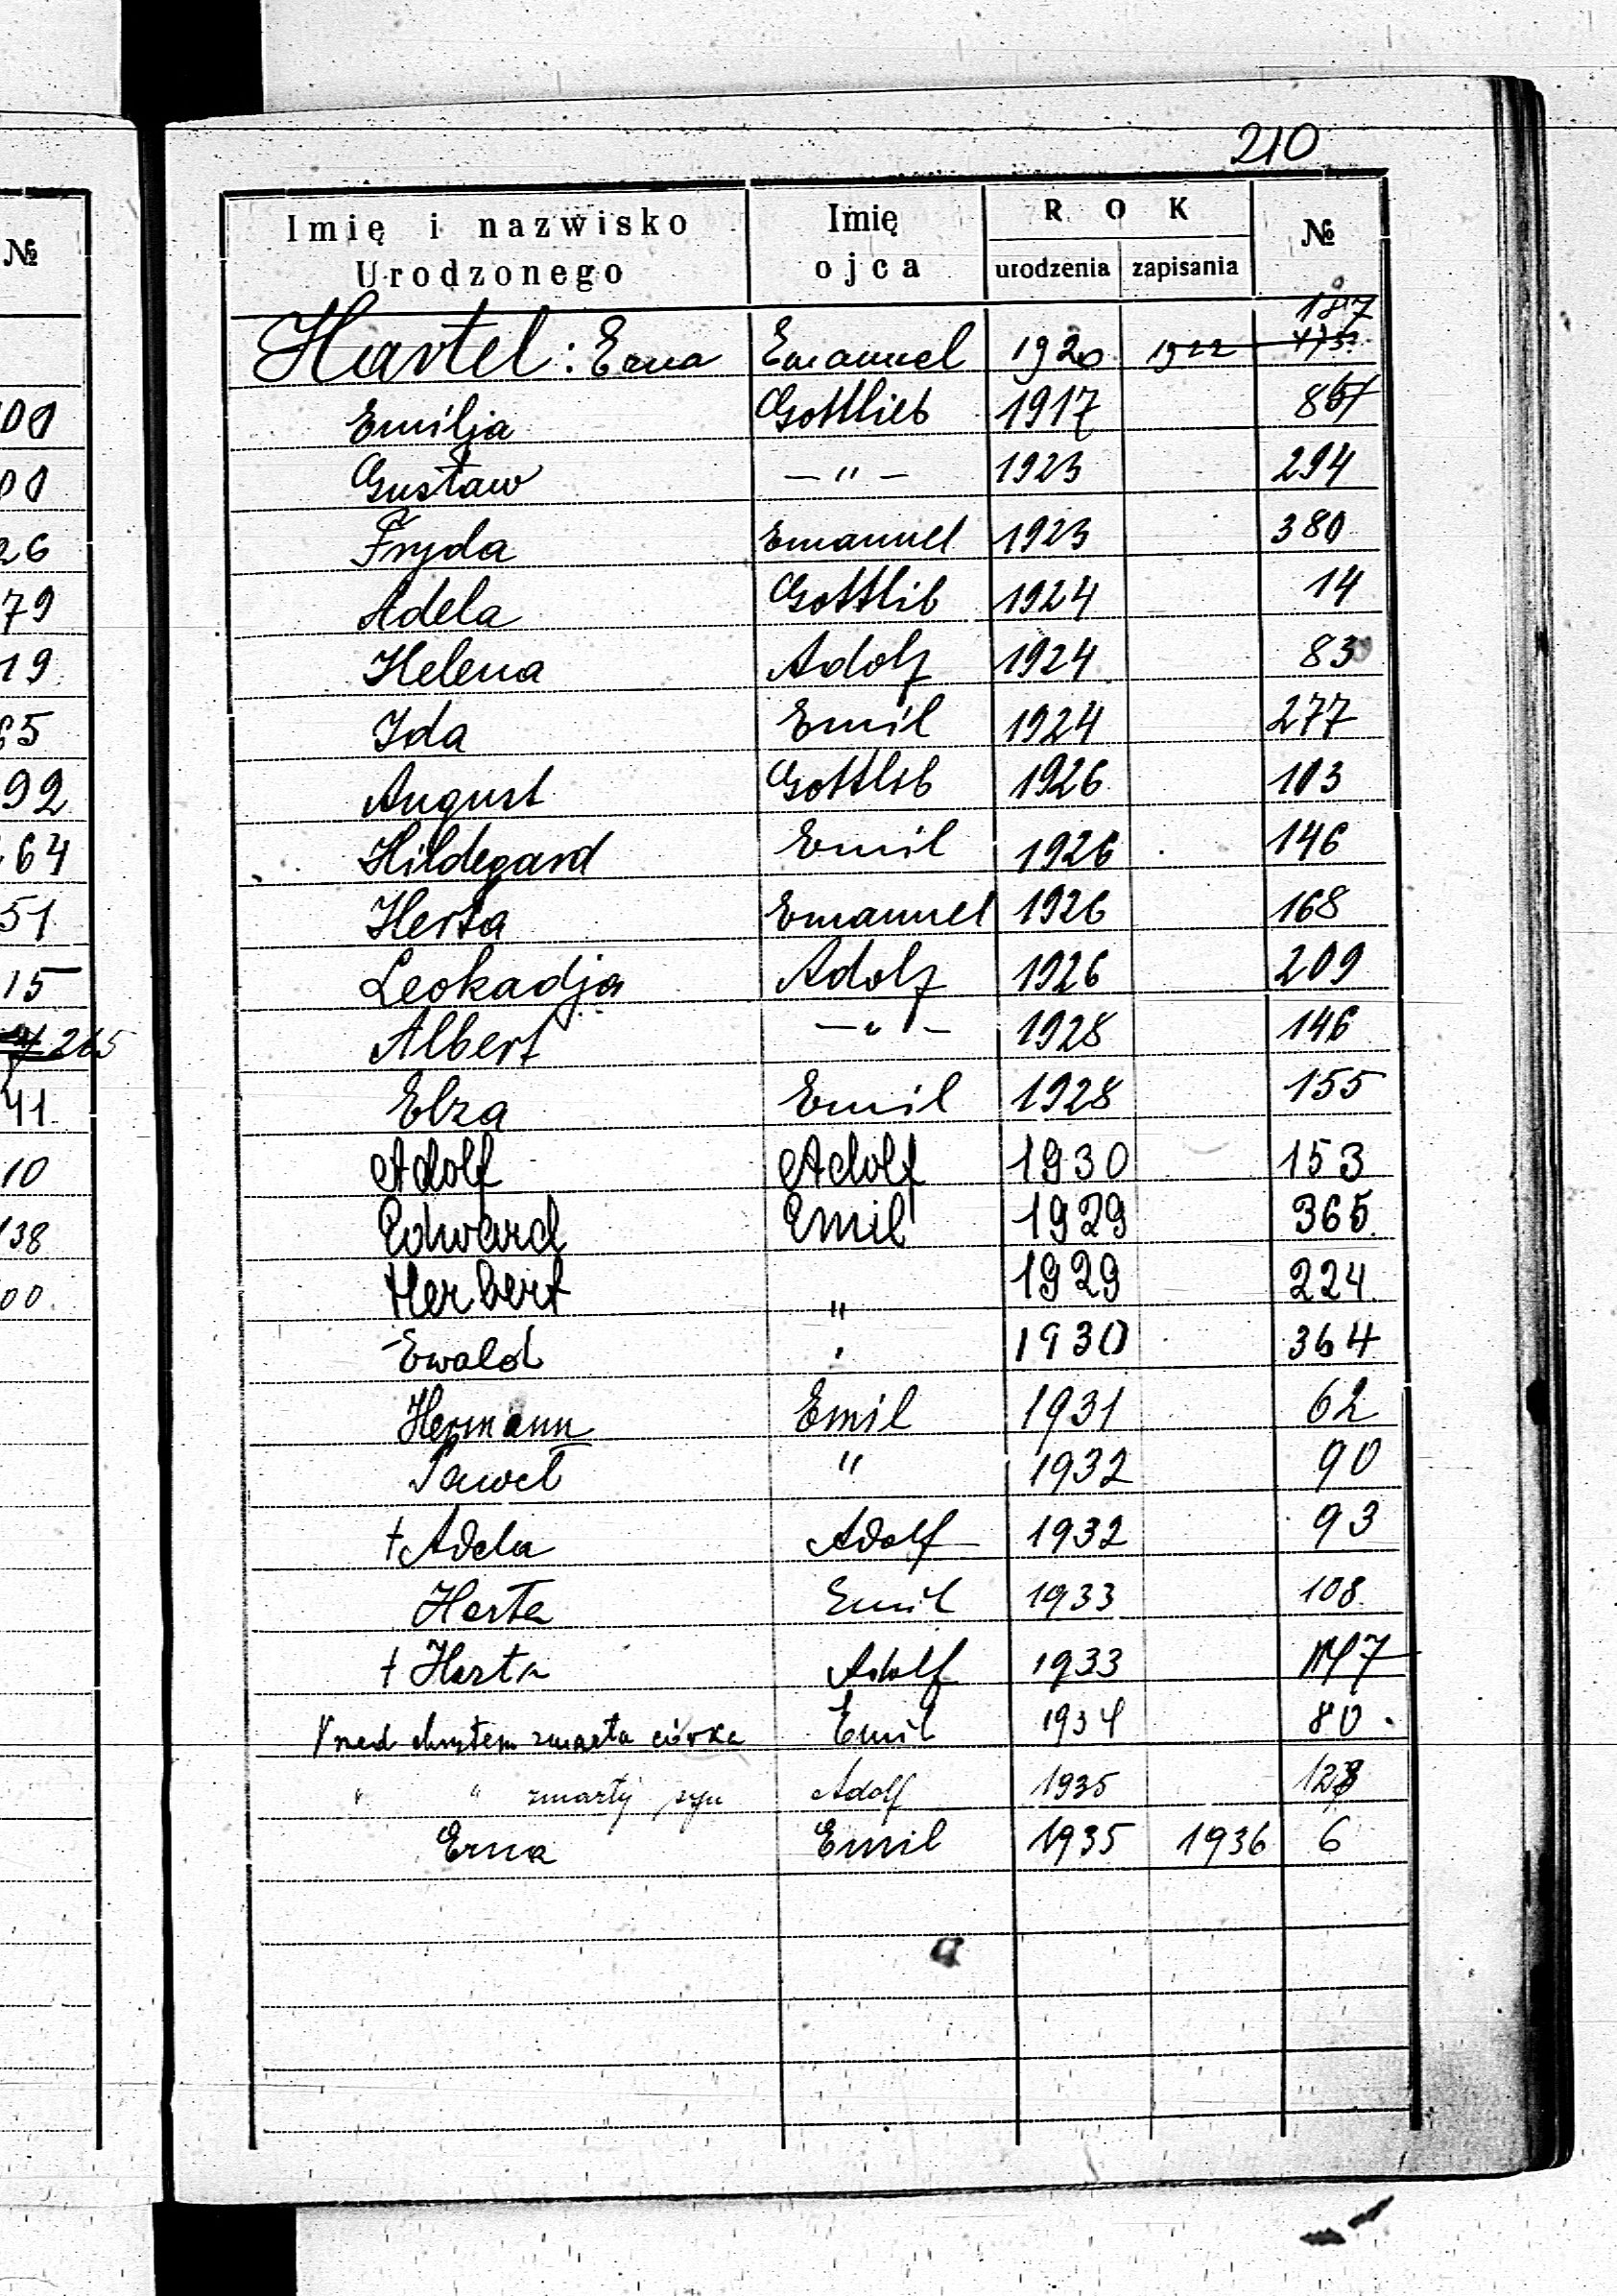 210
№
Imię i nazwisko Urodzonego
Imię ojca
ROK
urodzenia zapisania
№
187
Hartel: Erna Emanuel 1920 1922
Emilja Gottlieb 1917
Gustaw — " — 1923 294
Fryda Emanuel 1923 380
Adela Gottlib 1924 14
Helena Adolf 1924 83
Ida Emil 1924 277
August Gottlib 1926 103
Hildegard Emil 1926 146
Herta Emanuel 1926 168
Leokadja Adolf 1926 209
Albert — " — 1928 146
Elza Emil 1928 155
Adolf Adolf 1930 153
Edward Emil 1929 365
Herbert " 1929 224
Ewald " 1930 364
Hermann Emil 1931 62
Paweł " 1932 90
† Adela Adolf 1932 93
Herta Emil 1933 108
† Herta Adolf 1933
Przed chrztem zmarła córka Emil 1934 80
" " zmarły syn Adolf 1935
Erna Emil 1935 1936 6
00
00
26
79
19
65
92
64
51
15
265
41
10
138
00